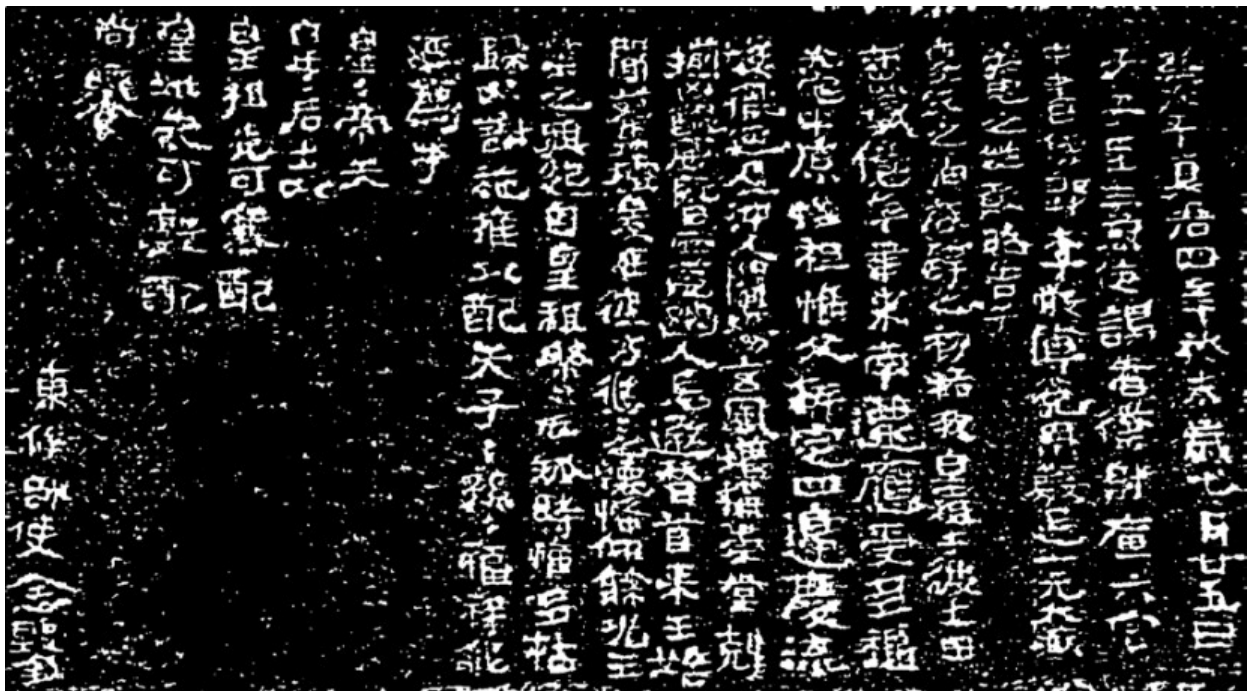 維太平真君四年癸未歲七月廿五日
天子臣燾使謁者僕射庫六官
中書侍郎李敞傅㝹用駿足一元大武
柔毛之牲敢昭告于
皇天之神啟辟之初祐我皇祖于彼土田
歷載億年聿來南遷應受多福
光宅中原惟祖惟父拓定四邊慶流
後胤延及沖人闡揚玄風增構崇堂剋
揃凶醜威暨四荒幽人忘遐稽首來王始
聞舊墟爰在彼方悠悠之懷希仰餘光王
業之興起自皇祖綿綿瓜瓞時惟多祜
歸以謝施推以配天子子孫孫福祿永
延薦于
皇皇帝天
皇皇后土以
皇祖先可寒配
皇妣先可敦配
尚饗
東作帥使念鑿